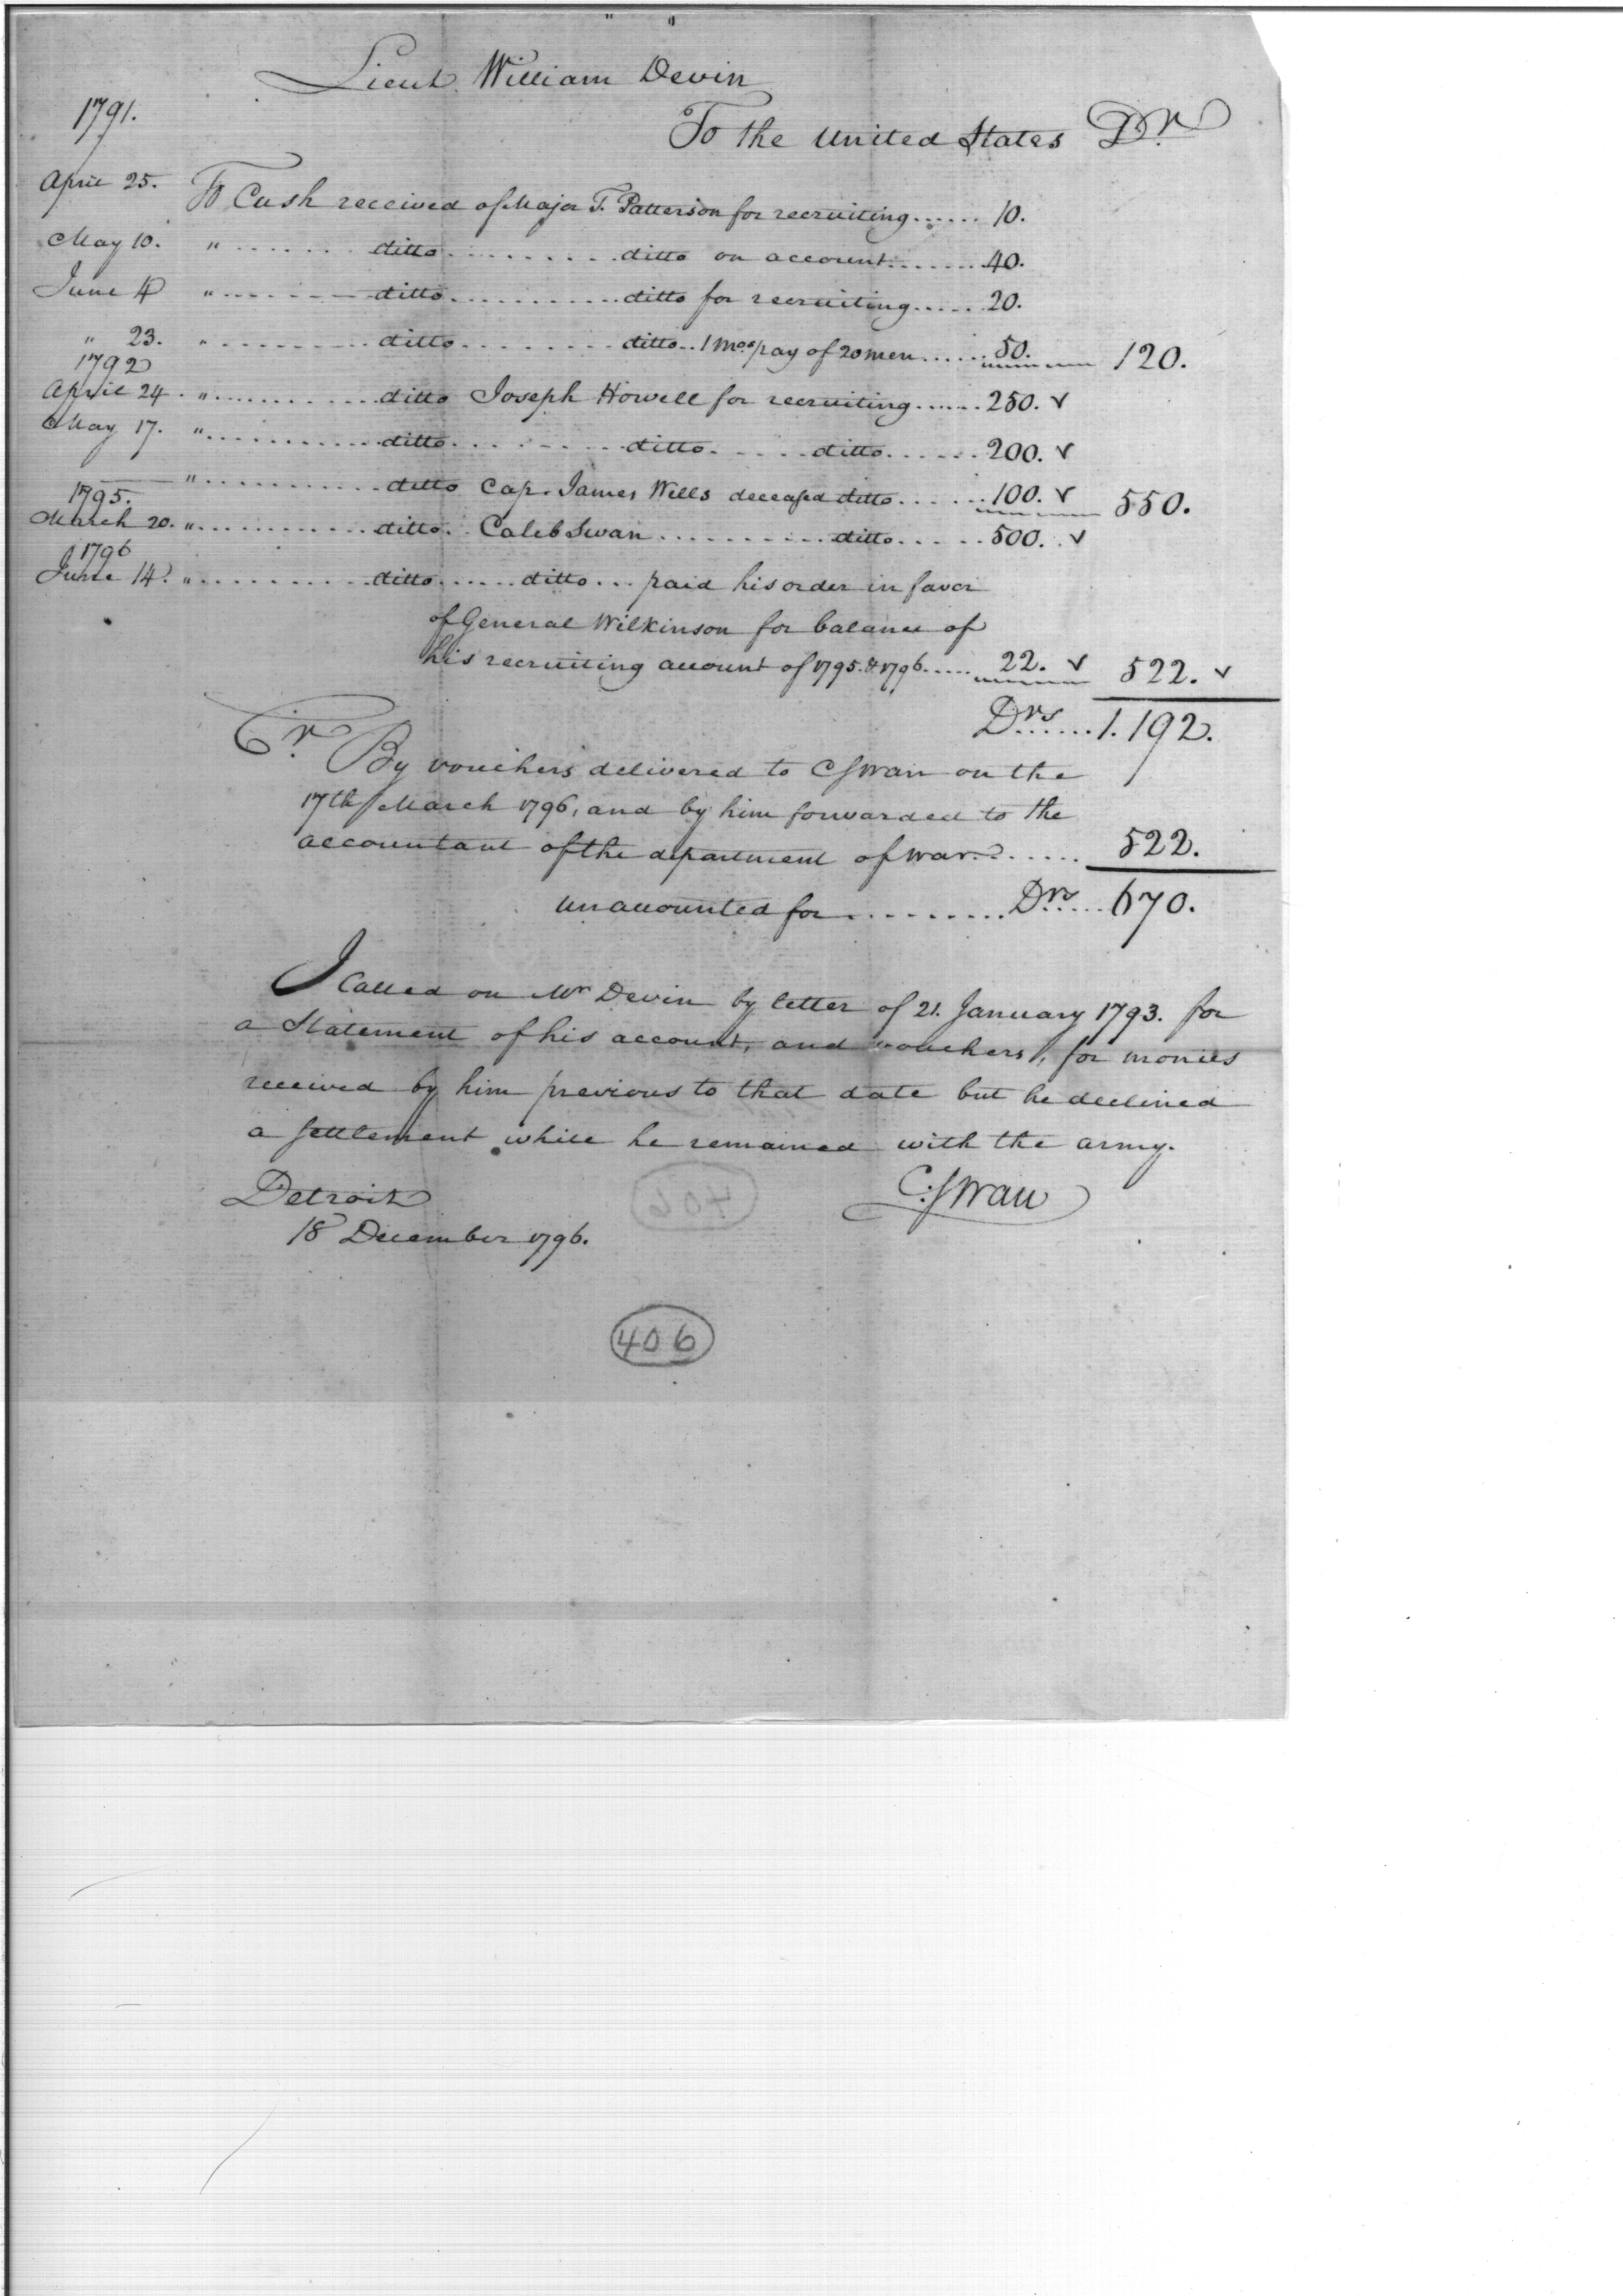 Lieut. William Devin
1791.
To the United States Dr.
April 25. To Cash received of Major T. Patterson for recruiting...... 10.
May 10. " ....... ditto .......... ditto on account....... 40.
June 4 " ....... ditto ........... ditto for recruiting..... 20.
" 23. " ......... ditto ......... ditto.. 1 Mos pay of 20 men...... 50. 120.
1792
April 24. " ............ ditto Joseph Howell for recruiting...... 250. ✓
May 17. " ............ ditto ......... ditto ..... ditto ...... 200. ✓
" ............ ditto Cap. James Wells deceased ditto ...... 100. ✓ 550.
1795.
March 20. " ............ ditto.. Caleb Swan .......... ditto ..... 500. ✓
1796
June 14. " ........... ditto ...... ditto ... paid his order in favor
of General Wilkinson for balance of
his recruiting account of 1795. & 1796..... 22. ✓ 522. ✓
Drs...... 1.192.
Cr. By vouchers delivered to CSwan on the
17th March 1796, and by him forwarded to the
accountant of the department of war....... 522.
unaccounted for .......... Drs..... 670.
I called on Mr Devin by letter of 21. January 1793. for
a Statement of his account, and vouchers, for monies
received by him previous to that date but he declined
a settlement while he remained with the army.
Detroit C:Swan
18 December 1796.
406
406